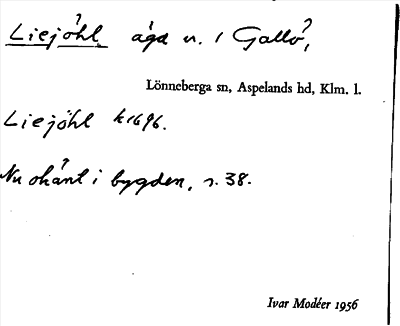 Liejöhl, äga u. i Gallö,
Lönneberga sn, Aspelands hd, Klm. l.
Liejöhl k1696.
Nu okänt i bygden, s. 38.
Ivar Modéer 1956